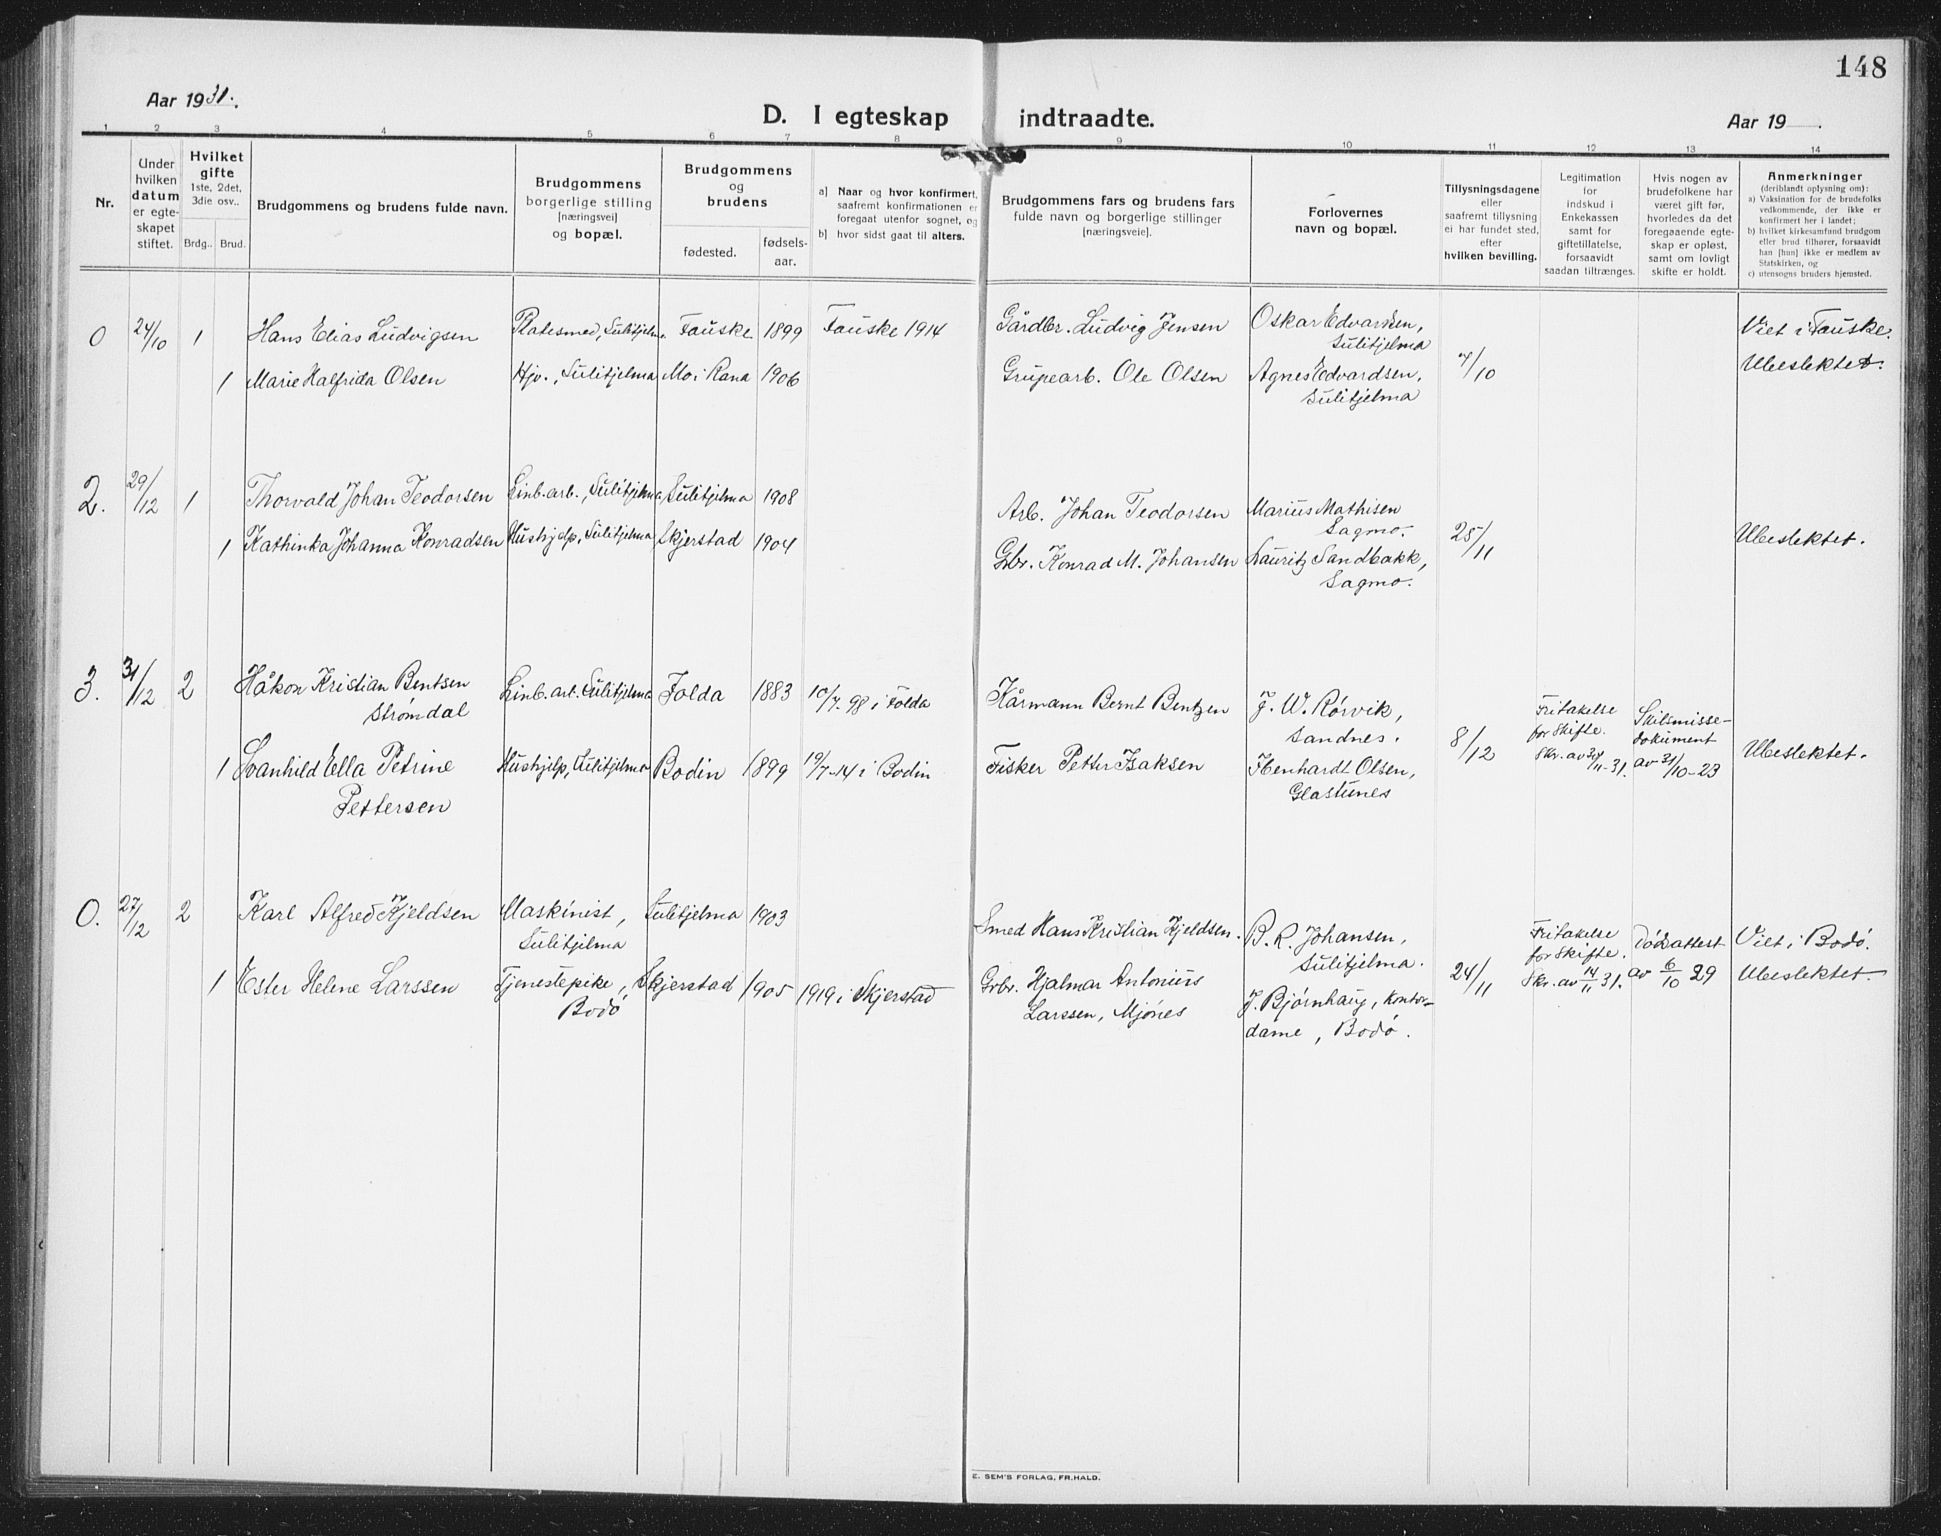 148
Aar 1931.
D. I egteskap indtraadte.
Aar 19 .
1 2 3 4 5 6 7 8 9 10 11 12 13 14
Nr.
Under
hvilken
datum
er egte-
skapet
stiftet.
Hvilket
gifte
1ste, 2det,
3die osv..
Brdg.. Brud.
Brudgommens og brudens fulde navn.
Brudgommens
borgerlige stilling
[næringsvei]
og bopæl.
Brudgommens
og
brudens
fødested.
fødsels-
aar.
a) Naar og hvor konfirmert,
saafremt konfirmationen er
foregaat utenfor sognet, og
b) hvor sidst gaat til alters.
Brudgommens fars og brudens fars
fulde navn og borgerlige stillinger
[næringsveie].
Forlovernes
navn og bopæl.
Tillysningsdagene
eller
saafremt tillysning
ei har fundet sted,
efter
hvilken bevilling.
Legitimation
for
indskud i
Enkekassen
samt for
giftetillatelse,
forsaavidt
saadan tiltrænges.
Hvis nogen av
brudefolkene har
været gift før,
hvorledes da det
foregaaende egte-
skap er opløst,
samt om lovligt
skifte er holdt.
Anmerkninger
(deriblandt oplysning om):
a) Vaksination for de brudefolks
vedkommende, der ikke er
konfirmert her i landet;
b) hvilket kirkesamfund brudgom
eller brud tilhører, forsaavidt
han [hun] ikke er medlem av
Statskirken, og
c) utensogns bruders hjemsted.
0 24/10 1 Hans Elias Ludvigsen Platesmed, Sulitjelma Fauske 1899 Fauske 1914 Gårdbr. Ludvig Jensen Oskar Edvardsen, Viet i Fauske.
Sulitjelma
1 Marie Halfrida Olsen Hjv., Sulitjelma Mo i Rana 1906 Grupearb. Ole Olsen Agnes Edvardsen, 7/10 Ubeslektet.
Sulitjelma
2. 29/12 1 Thorvald Johan Teodorsen Linb.arb., Sulitjelma, Sulitjelma 1908 Arb. Johan Teodorsen Marius Mathisen
Sagmo.
1 Kathinka Johanna Konradsen Hushjelp, Sulitjelma Skjerstad 1904 Gbr. Konrad M. Johansen Lauritz Sandbakk, 25/11 Ubeslektet.
Sagmo.
3. 31/12 2 Håkon Kristian Bentsen Linb. arb. Sulitjelma Folda 1883 10/7-98 i Folda Kårmann Bernt Bentzen J. W. Rørvik, Fritakelse Skilsmisse-
Strømdal Sandnes. for Skifte. dokument
1 Svanhild Ella Petrine Hushjelp, Sulitjelma Bodin 1899 19/7-14 i Bodin Fisker Petter Isaksen Henhardt Olsen, 8/12 Skr. av 30/11-31. av 31/10-23 Ubeslektet.
Pettersen Glastunes
0. 27/12 2 Karl Alfred Kjeldsen Maskinist, Sulitjelma 1903 Smed Hans Kristian Kjeldsen. B. R. Johansen, Fritakelse Dødsattest Viet i Bodø.
Sulitjelma Sulitjelma. for Skifte.
1 Ester Helene Larssen Tjenestepike, Skjerstad 1905 1919 i Skjerstad Grbr. Hjalmar Antonius J. Bjørnhaug, Kontor- 24/11 Skr. av 14/11 31. av 6/10 29 Ubeslektet
Bodø Larssen, Mjønes dame, Bodø.
E. SEM'S FORLAG, FR.HALD.